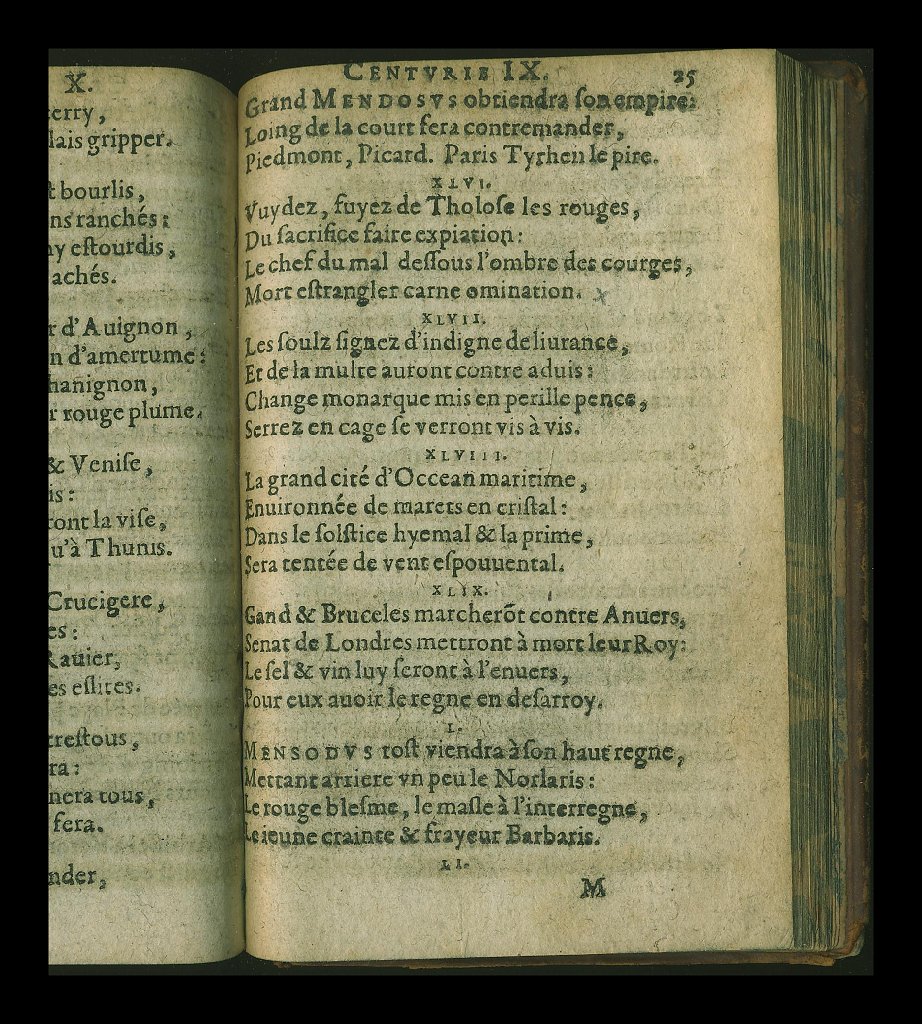 X.
erry,
lais gripper.
t bourlis,
ns ranchés:
y eſtourdis,
achés.
r d'Auignon,
n d'amertume:
hanignon,
r rouge plume.
& Veniſe,
is:
ront la viſe,
u'à Thunis.
Crucigere,
es:
Rauier,
es eſlites.
treſtous,
ra:
nera tous,
fera.
nder,
CENTVRIE IX. 25
Grand MENDOSVS obtiendra ſon empire:
Loing de la court fera contremander,
Piedmont, Picard. Paris Tyrhen le pire.
XLVI.
Vuydez, fuyez de Tholoſe les rouges,
Du ſacrifice faire expiation:
Le chef du mal deſſous l'ombre des courges,
Mort eſtrangler carne omination. x
XLVII.
Les ſoulz ſignez d'indigne deliurance,
Et de la multe auront contre aduis:
Change monarque mis en perille pence,
Serrez en cage ſe verront vis à vis.
XLVIII.
La grand cité d'Occean maritime,
Enuironnée de marets en criſtal:
Dans le ſolſtice hyemal & la prime,
Sera tentée de vent eſpouuental.
XLIX.
Gand & Bruceles marcherõt contre Anuers,
Senat de Londres mettront à mort leur Roy:
Le ſel & vin luy ſeront à l'enuers,
Pour eux auoir le regne en deſarroy.
L.
MENSODVS toſt viendra à ſon haut regne,
Mettant arriere vn peu le Norlaris:
Le rouge bleſme, le maſle à l'interregne,
Le ieune crainte & frayeur Barbaris.
LI.
M